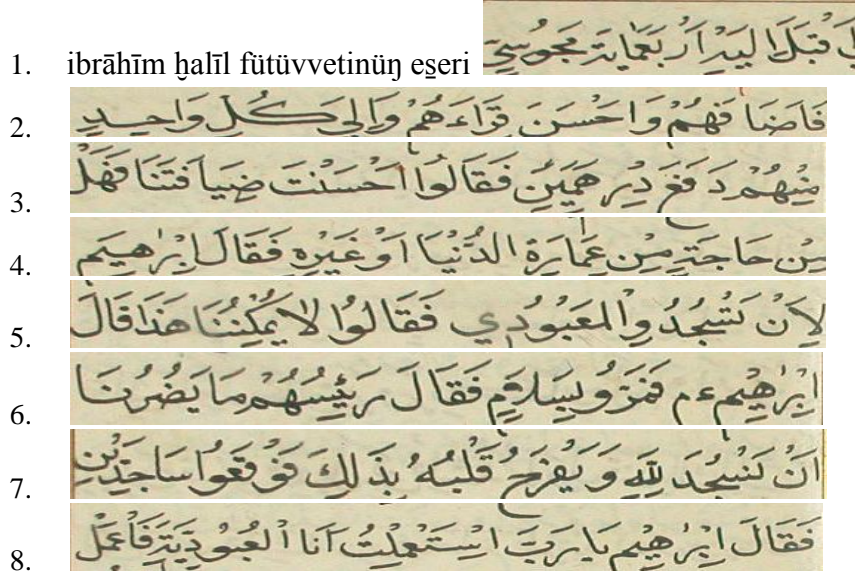 1. ibrāhīm ḫalīl fütüvvetinüŋ es̱eri اَرْبَعَمايَة مَجُوسِيّ
2. فَاَضَا فَهُمْ وَاَحْسَنَ قِرَاءَهُمْ وَاِلىَ كُلِّ وَاحِدٍ
3. مِنْهُمْ دَفَعَ دِرْهَمَيْنِ فَقَالُوا اَحْسَنْتَ ضِيَافَتَنَا فَهَلْ
4. مِنْ حَاجَةٍ مِنْ عِمَارَةِ الدُّنْيَا اَوْ غَيْرِهِ فَقَالَ اِبْرٰهِيم
5. لِاَنْ تَسْجُدُ والمَعْبُودِي فَقَالُوا لَا يُمْكِنُنَا هَذَا قَالَ
6. اِبْرٰهِيم ءم فَمَرُّو بِسَلَامٍ فَقَالَ رَئِيسُهُمْ مَا يَضُرُّنَا
7. اَنْ نَسْجُدَ لِلّٰهِ وَيَفْرَحُ قَلْبُهُ بِذَلِكَ فَوَقَعُوا سَاجِدِينَ
8. فَقَالَ اِبْرٰهِيم يَا رَبِّ اِسْتَعْمَلْتُ اَنَا الْعُبُودِيَّةَ فَاعْمَلْ